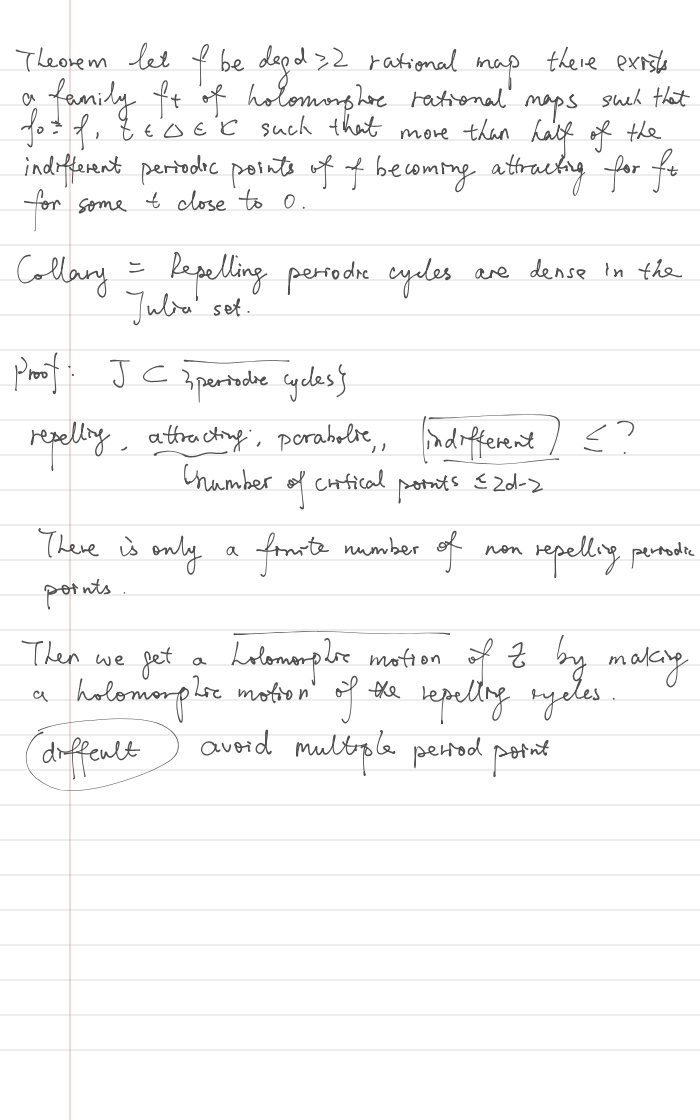 Theorem let f be deg d ≥2 rational map there exists
a family ft of holomorphic rational maps such that
f0 = f, t ∈ Δ ∈ C such that more than half of the
indifferent periodic points of f becoming attracting for ft
for some t close to 0.
Collary = Repelling periodic cycles are dense in the
Julia set.
Proof: J ⊂ {periodic cycles}
repelling, attracting, parabolic,, indifferent ≤ ?
number of critical points ≤ 2d-2
There is only a finite number of non repelling periodic
points.
Then we get a holomorphic motion of J by making
a holomorphic motion of the repelling cycles.
difficult avoid multiple period point